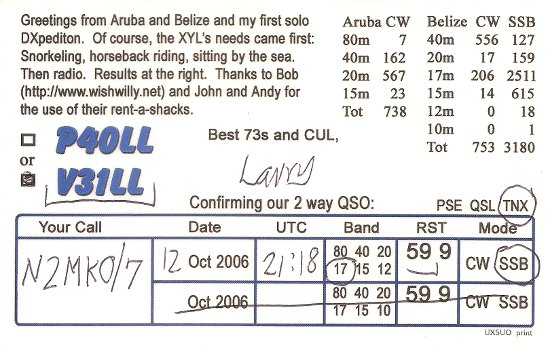 Greetings from Aruba and Belize and my first solo
DXpediton. Of course, the XYL's needs came first:
Snorkeling, horseback riding, sitting by the sea.
Then radio. Results at the right. Thanks to Bob
(http://www.wishwilly.net) and John and Andy for
the use of their rent-a-shacks.
Aruba CW
80m 7
40m 162
20m 567
15m 23
Tot 738
Belize CW SSB
40m 556 127
20m 17 159
17m 206 2511
15m 14 615
12m 0 18
10m 0 1
Tot 753 3180
P40LL
or
V31LL
Best 73s and CUL,
Larry
Confirming our 2 way QSO: PSE QSL TNX
Your Call Date UTC Band RST Mode
N2MKO/7 12 Oct 2006 21:18 80 40 20 59 9 CW SSB
17 15 12
Oct 2006 80 40 20 59 9 CW SSB
17 15 10
UX5UO print